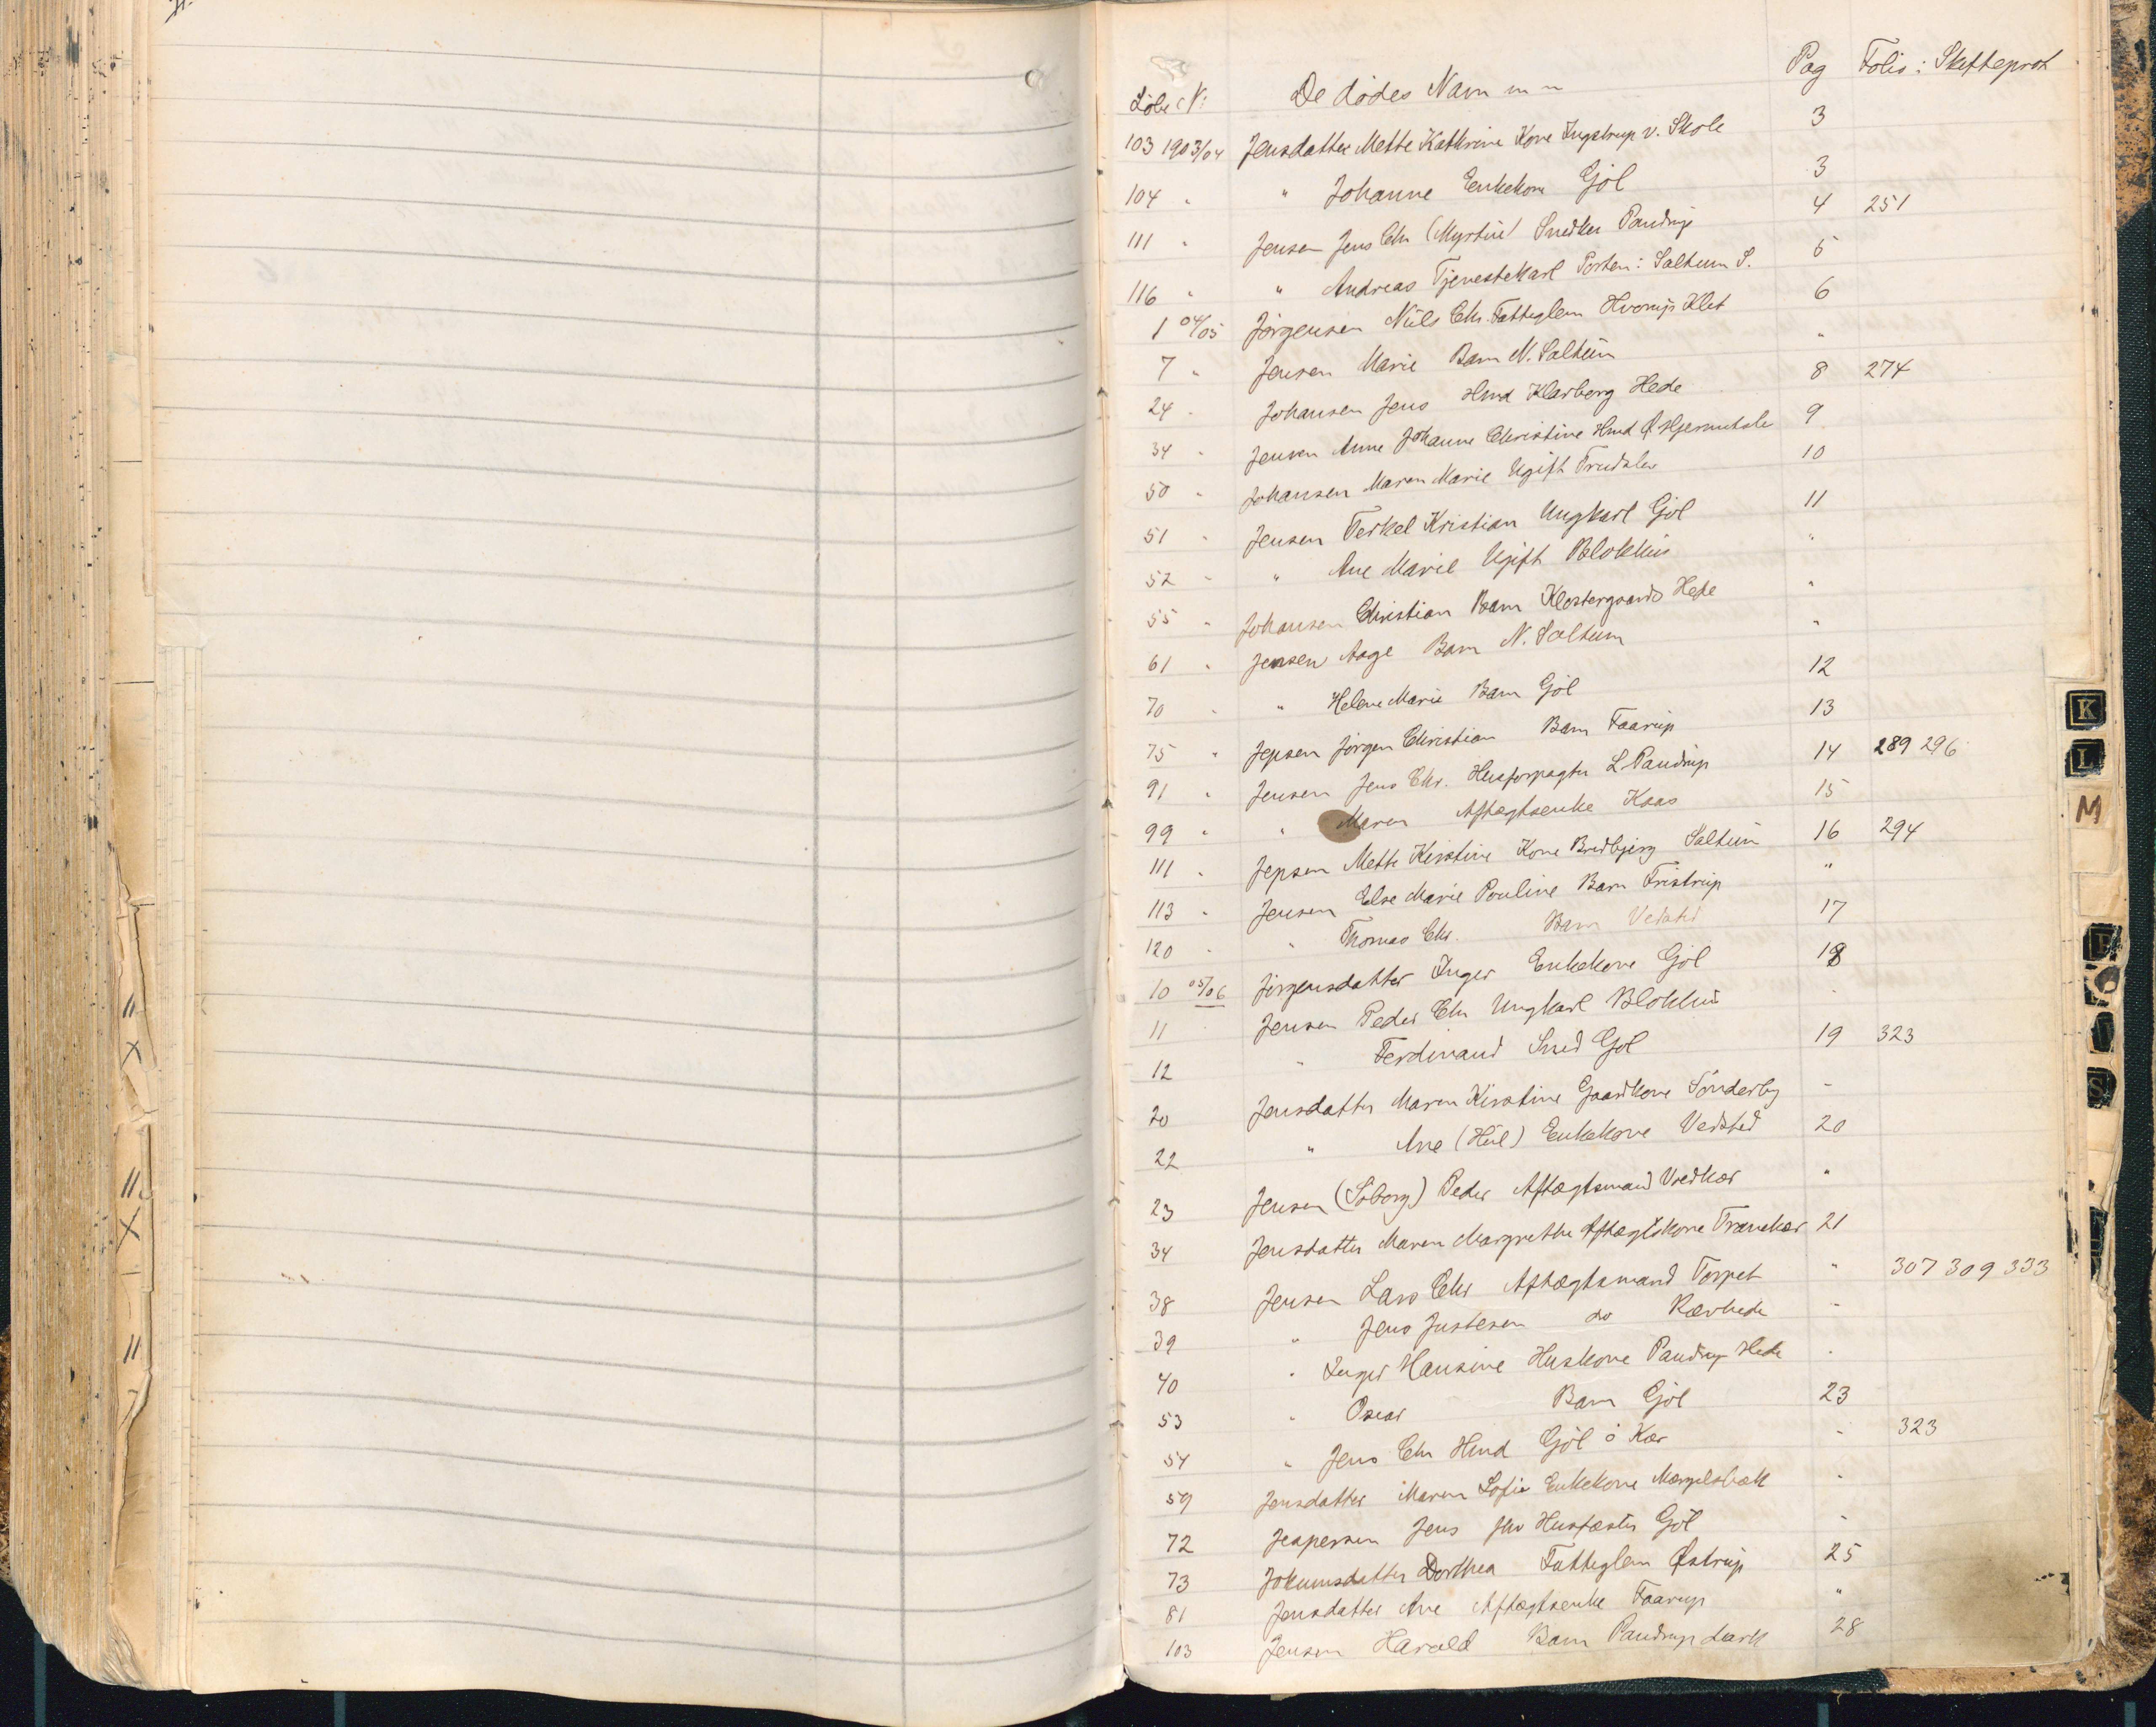 Löbe N: De dødes Navn m m Pag Folio i Skifteprot
103 1903/04 Jensdatter Mette Kathrine Kone Ingstrup v. Skole 3
104 " " Johanne Enkekone Gjöl 3
111 " Jensen Jens Chr (Myrtue) Snedker Pandrup 4 251
116 " " Andreas Tjenestekarl Porten i Saltum S. 5
1 04/05 Jörgensen Niels Chr. Fattiglem Hvorup Klit 6
7 " Jensen Marie Barn N. Saltum "
24 " Johansen Jens Hmd Klarborg Hede 8 274
34 " Jensen Anne Johanne Christine Hmd Ø Hjermitslv 9
50 " Johansen Maren Marie Ugift Trudslev 10
51 " Jensen Terkel Kristian Ungkarl Gjöl 11
52 " " Ane Marie Ugift Blokhus "
55 " Johansen Christian Barn Klostergaards Hede "
61 " Jensen Aage Barn N. Saltum "
70 " " Helene Marie Barn Gjöl 12
75 " Jepsen Jörgen Christian Barn Faarup 13
91 " Jensen Jens Chr. Husforpagter L. Pandrup 14 289 296
99 " " Maren Aftægtsenke Kaas 15
111 " Jepsen Mette Kirstine Kone Bredbjerg Saltum 16 294
113 " Jensen Else Marie Pouline Barn Fristrup "
120 " " Thomas Chr. Barn Vedsted 17
10 05/06 Jörgensdatter Inger Enkekone Gjöl 18
11 Jensen Peder Chr Ungkarl Blokhus "
12 " Ferdinand Smed Gjöl 19 323
20 Jensdatter Maren Kirstine Gaardkone Sönderby "
22 " Ane (Hül) Enkekone Vedsted 20
23 Jensen (Söborg) Peder Aftægtsmand Vredkær "
34 Jensdatter Maren Margrethe Aftægtskone Tranekær 21
38 Jensen Lars Chr Aftægtsmand Torpet " 307 309 333
39 " Jens Justesen do Rævhede "
40 " Inger Hansine Huskone Pandrup Hede "
53 " Oscar Barn Gjöl 23
54 " Jens Chr Hmd Gjöl ö Kær " 323
59 Jensdatter Maren Sofie Enkekone Mergelsbæk "
72 Jespersen Jens Husfæster Gjöl "
73 Jokumsdatter Dorthea Fattiglem Østrup 25
81 Jensdatter Ane Aftægtsenke Faarup "
103 Jensen Harald Barn Pandrup 28
K
L
M
S